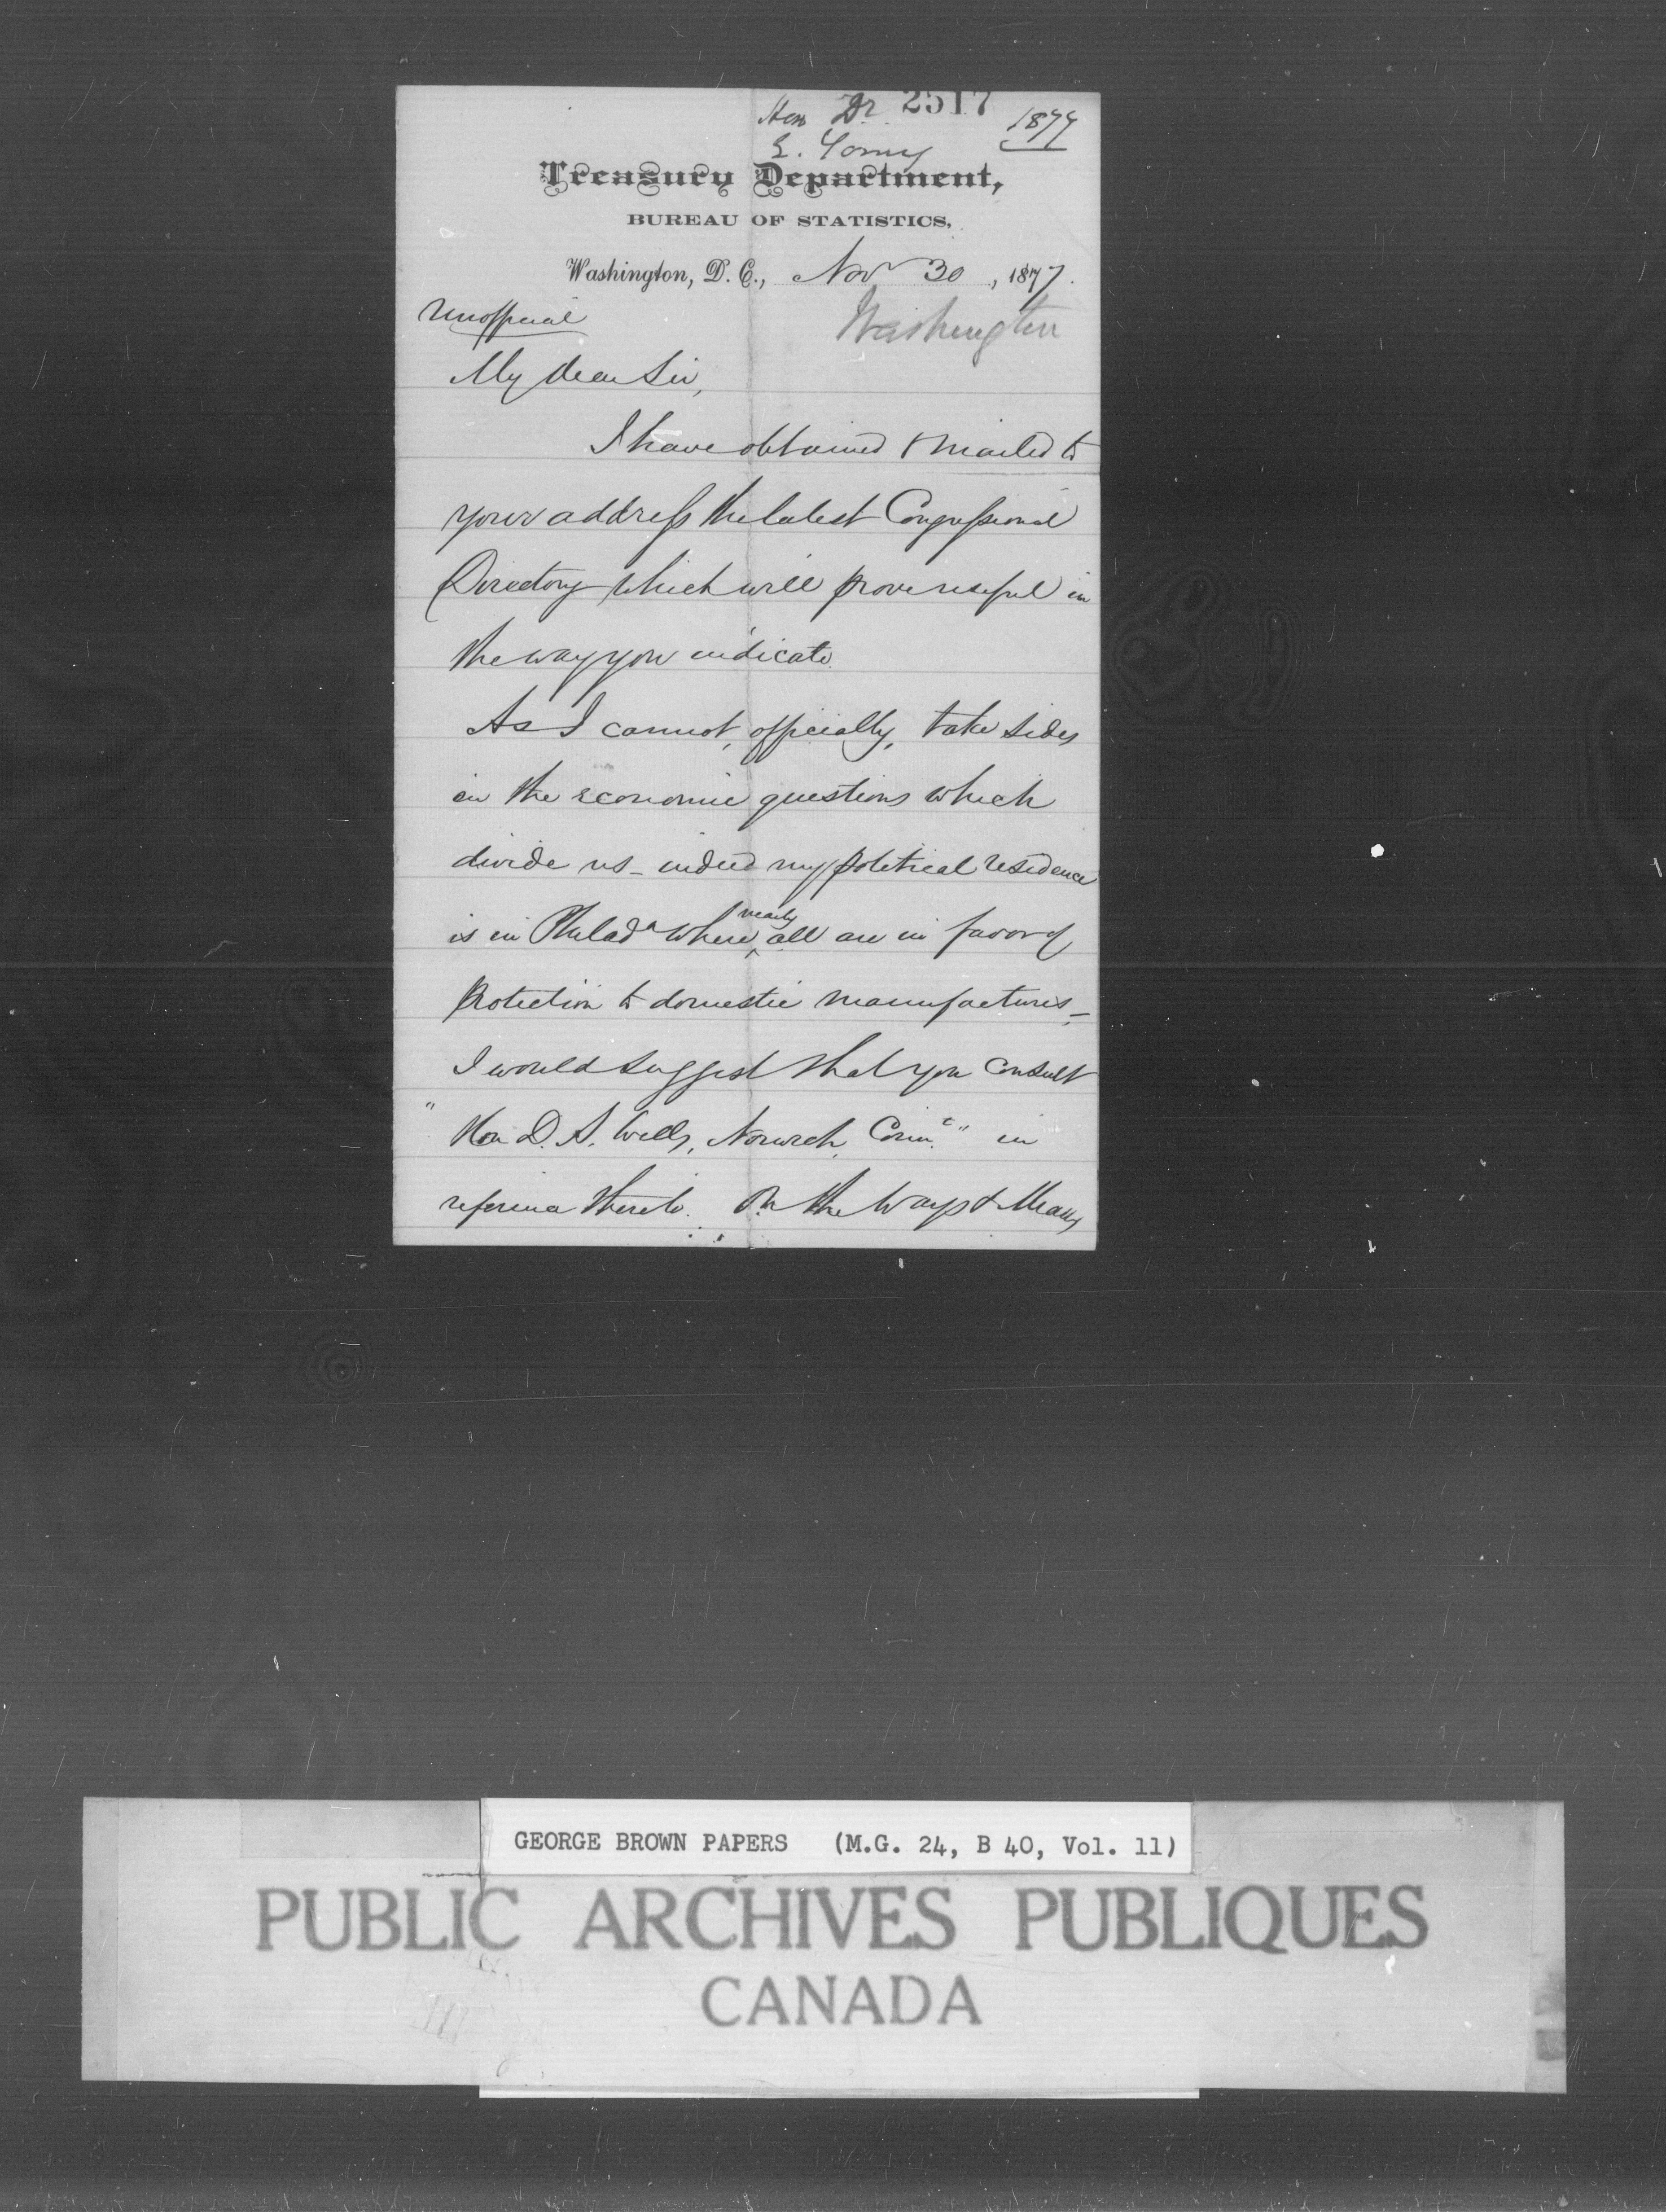 Hon Dr. 2517 1877
E. Young
Treasury Department,
BUREAU OF STATISTICS,
Washington, D. C., Nov 30, 1877.
Unofficial
Washington
My dear Sir,
I have obtained & mailed to
your address the latest Congressional
Directory which will prove useful in
the way you indicate.
As I cannot, officially, take sides
in the economic questions which
divide us - indeed my political residence
is in Philada where nearly all are in favor of
protection to domestic manufactures -
I would suggest that you consult
"Hon D. A. Wells, Norwich, Connt" in
reference thereto. On the Ways & Means
GEORGE BROWN PAPERS (M.G. 24, B 40, Vol. 11)
PUBLIC ARCHIVES PUBLIQUES
CANADA